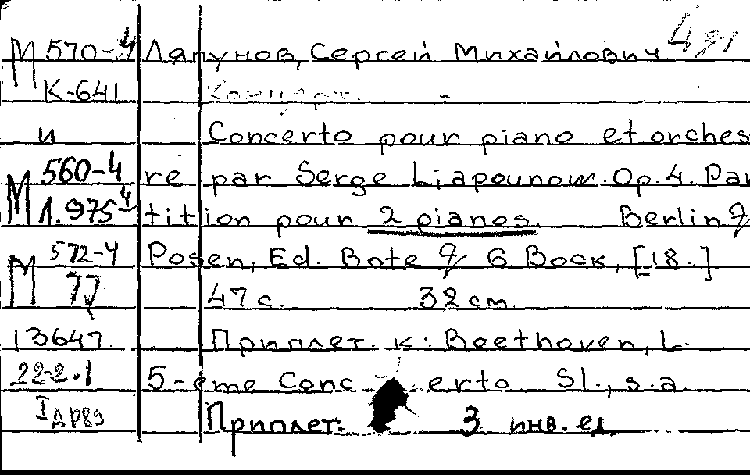 М 570-4 Ляпунов, Сергей Михайлович
К-641 Концерт. -
и Concerto pour piano et orches
М 560-4 re par Serge Liapounow. Op. 4. Par
1.975 4 tition pour 2 pianos. Berlin &
М 572-4 Posen, Ed. Bote & G Bock, [18. ]
47 с. 32 cm.
13647. Приплет. к: Beethoven, L.
22-2.1 5-éme Conc erto Sl., s.a.
Приплет. 3 инв. ед.